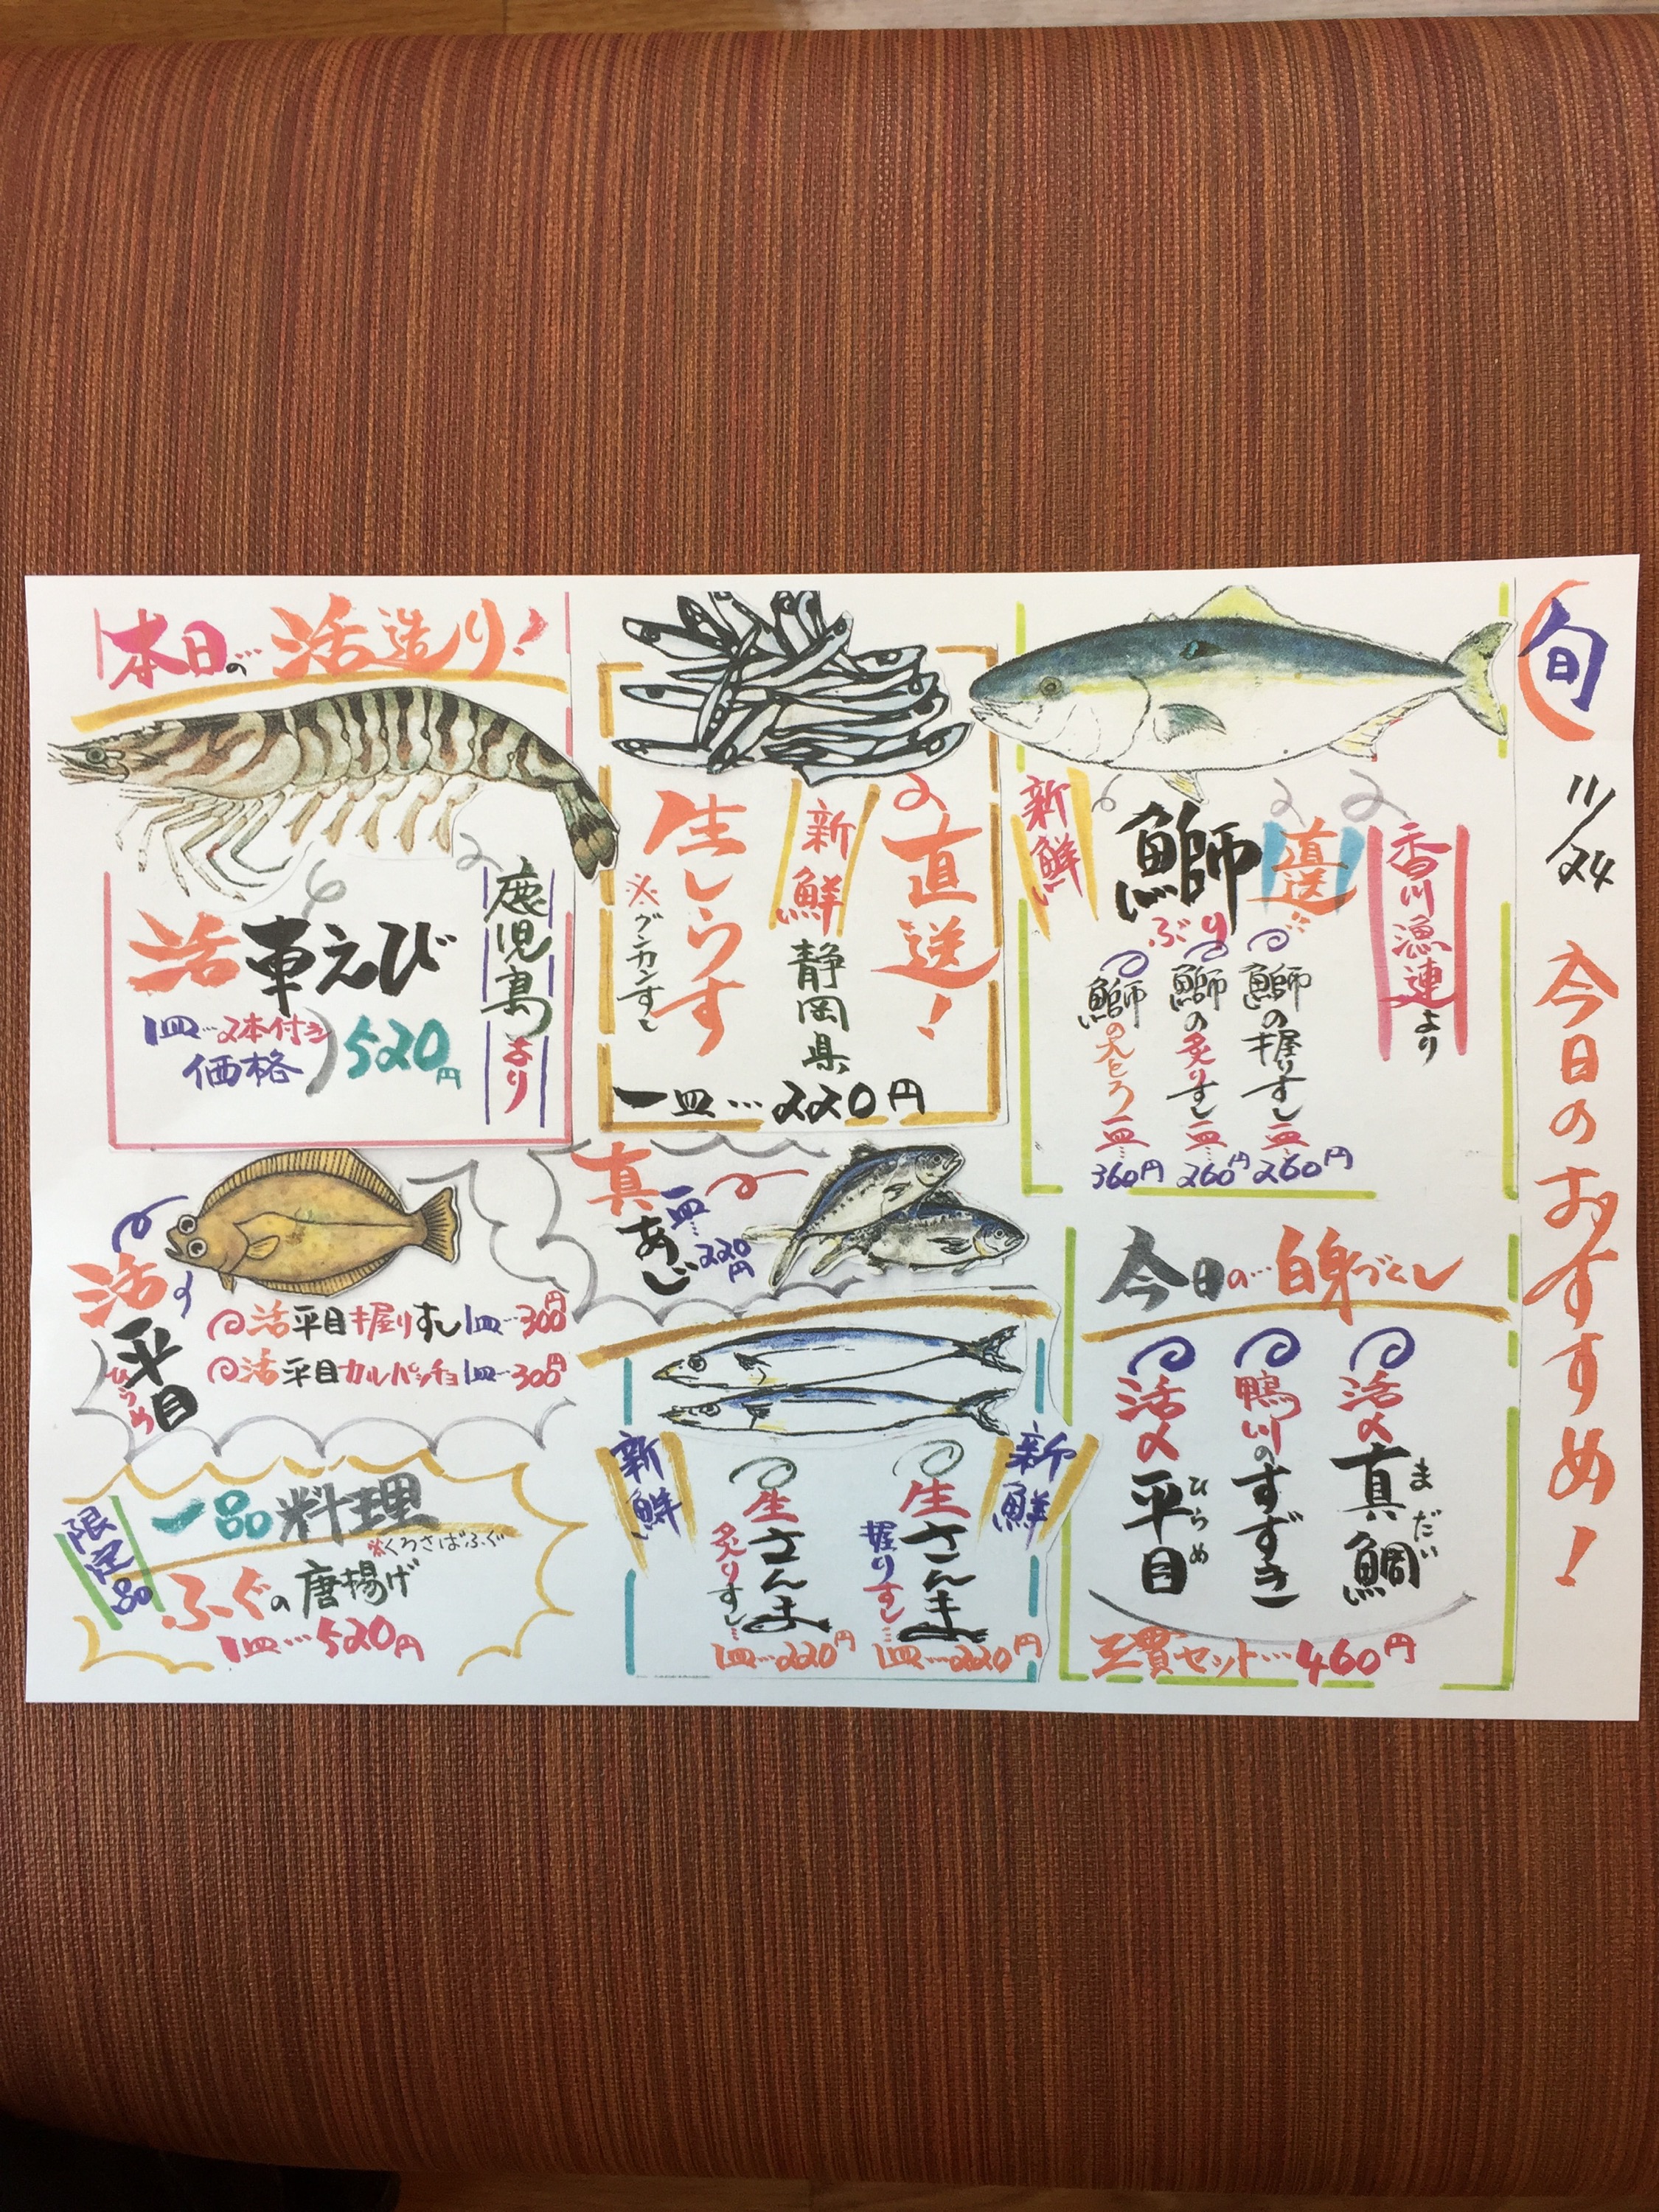 旬
11/24
今日のおすすめ！
香川漁連より
直送
鰤
ぶり
新鮮
鰤の握りすし一皿…260円
鰤の炙りすし一皿…260円
鰤の大とろ一皿…360円
直送！
新鮮
静岡県
生しらす
※グンカンすし
一皿…220円
本日の…活造り！
鹿児島より
活車えび
1皿…2本付き
価格
520円
今日の…白身づくし
活〆真鯛
まだい
鴨川のすずき
活〆平目
ひらめ
三貫セット…460円
真あじ
一皿…220円
新鮮
生さんま
握りすし…
1皿…220円
生さんま
炙りすし…
1皿…220円
新鮮
活平目
ひらめ
活平目握りすし1皿…300円
活平目カルパッチョ1皿…300円
限定品
一品料理
※くろさばふぐ
ふぐの唐揚げ
1皿…520円